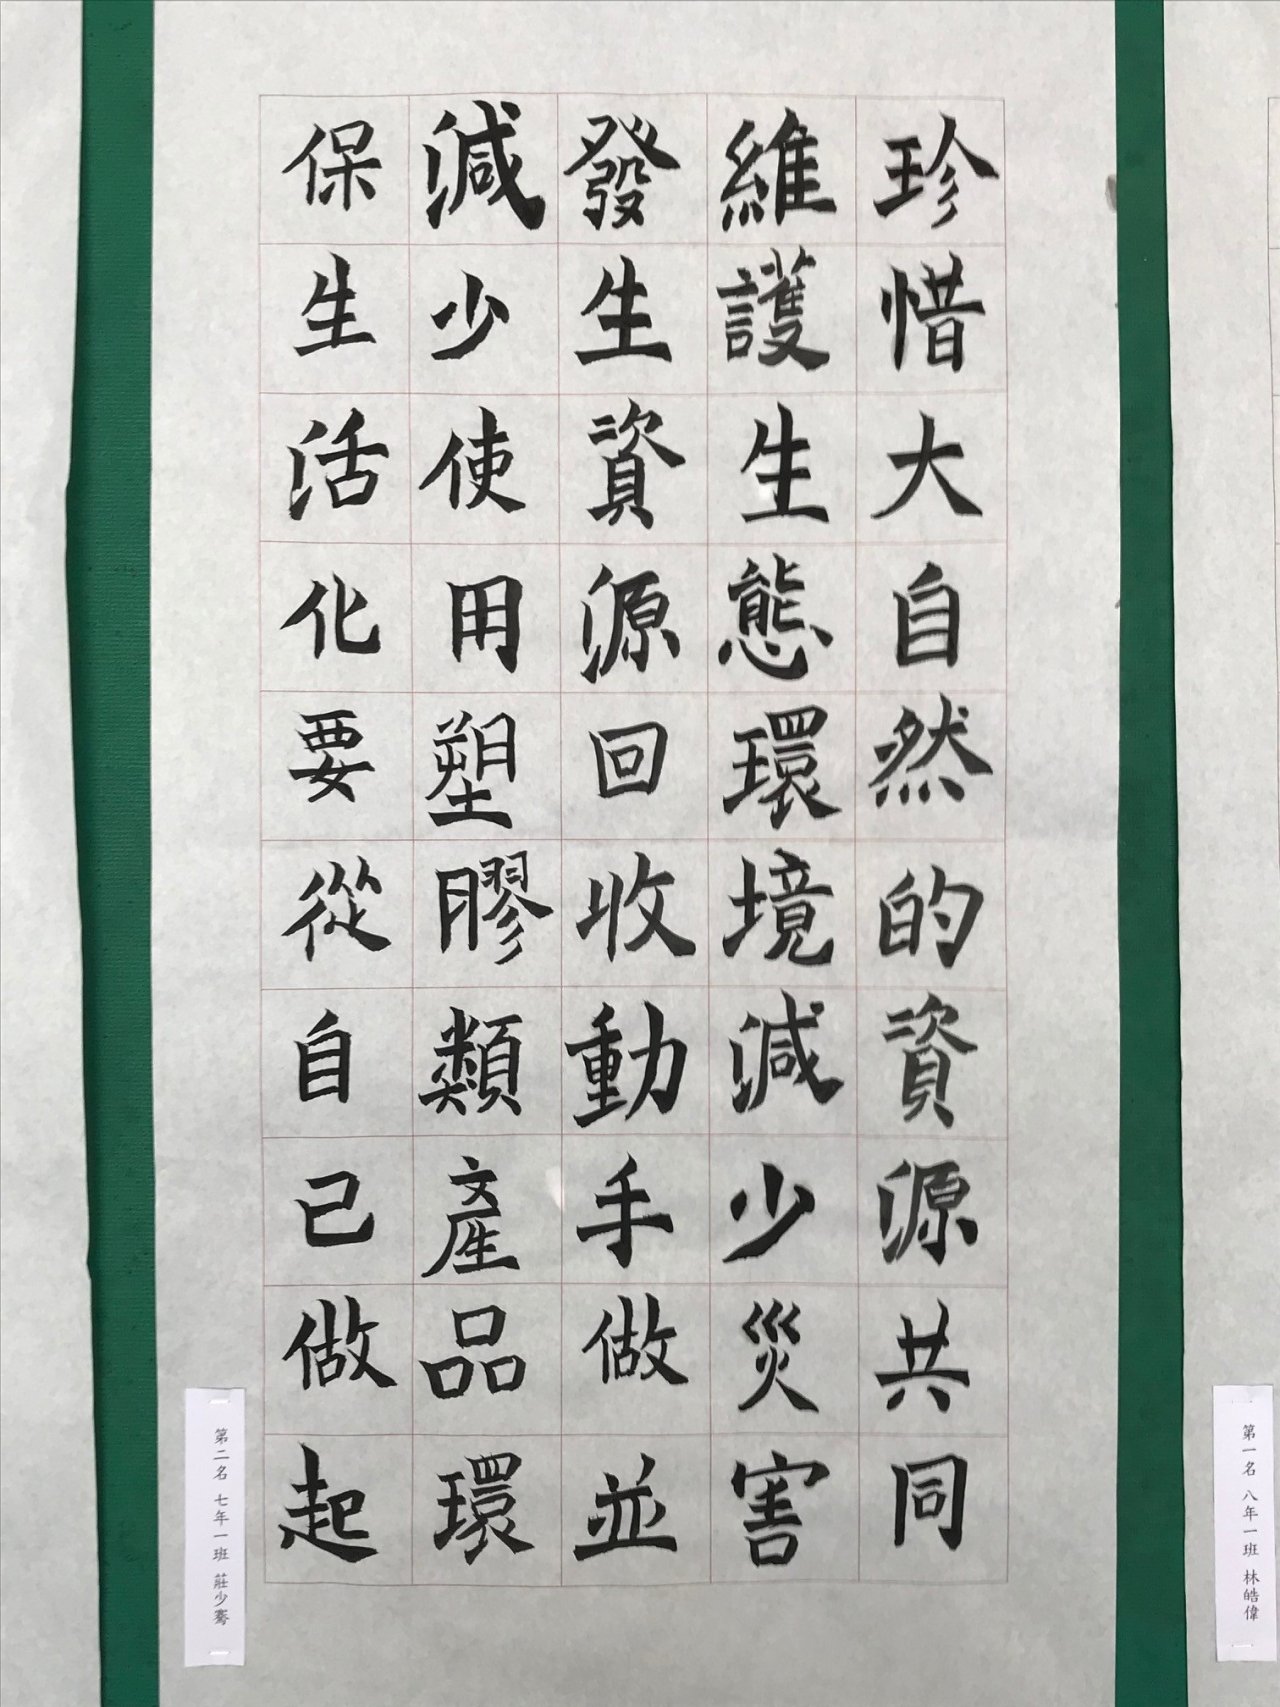 珍惜大自然的資源共同
維護生態環境減少災害
發生資源回收動手做並
減少使用塑膠類產品環
保生活化要從自己做起
第二名 七年一班 莊少騫
第一名 八年一班 林皓偉